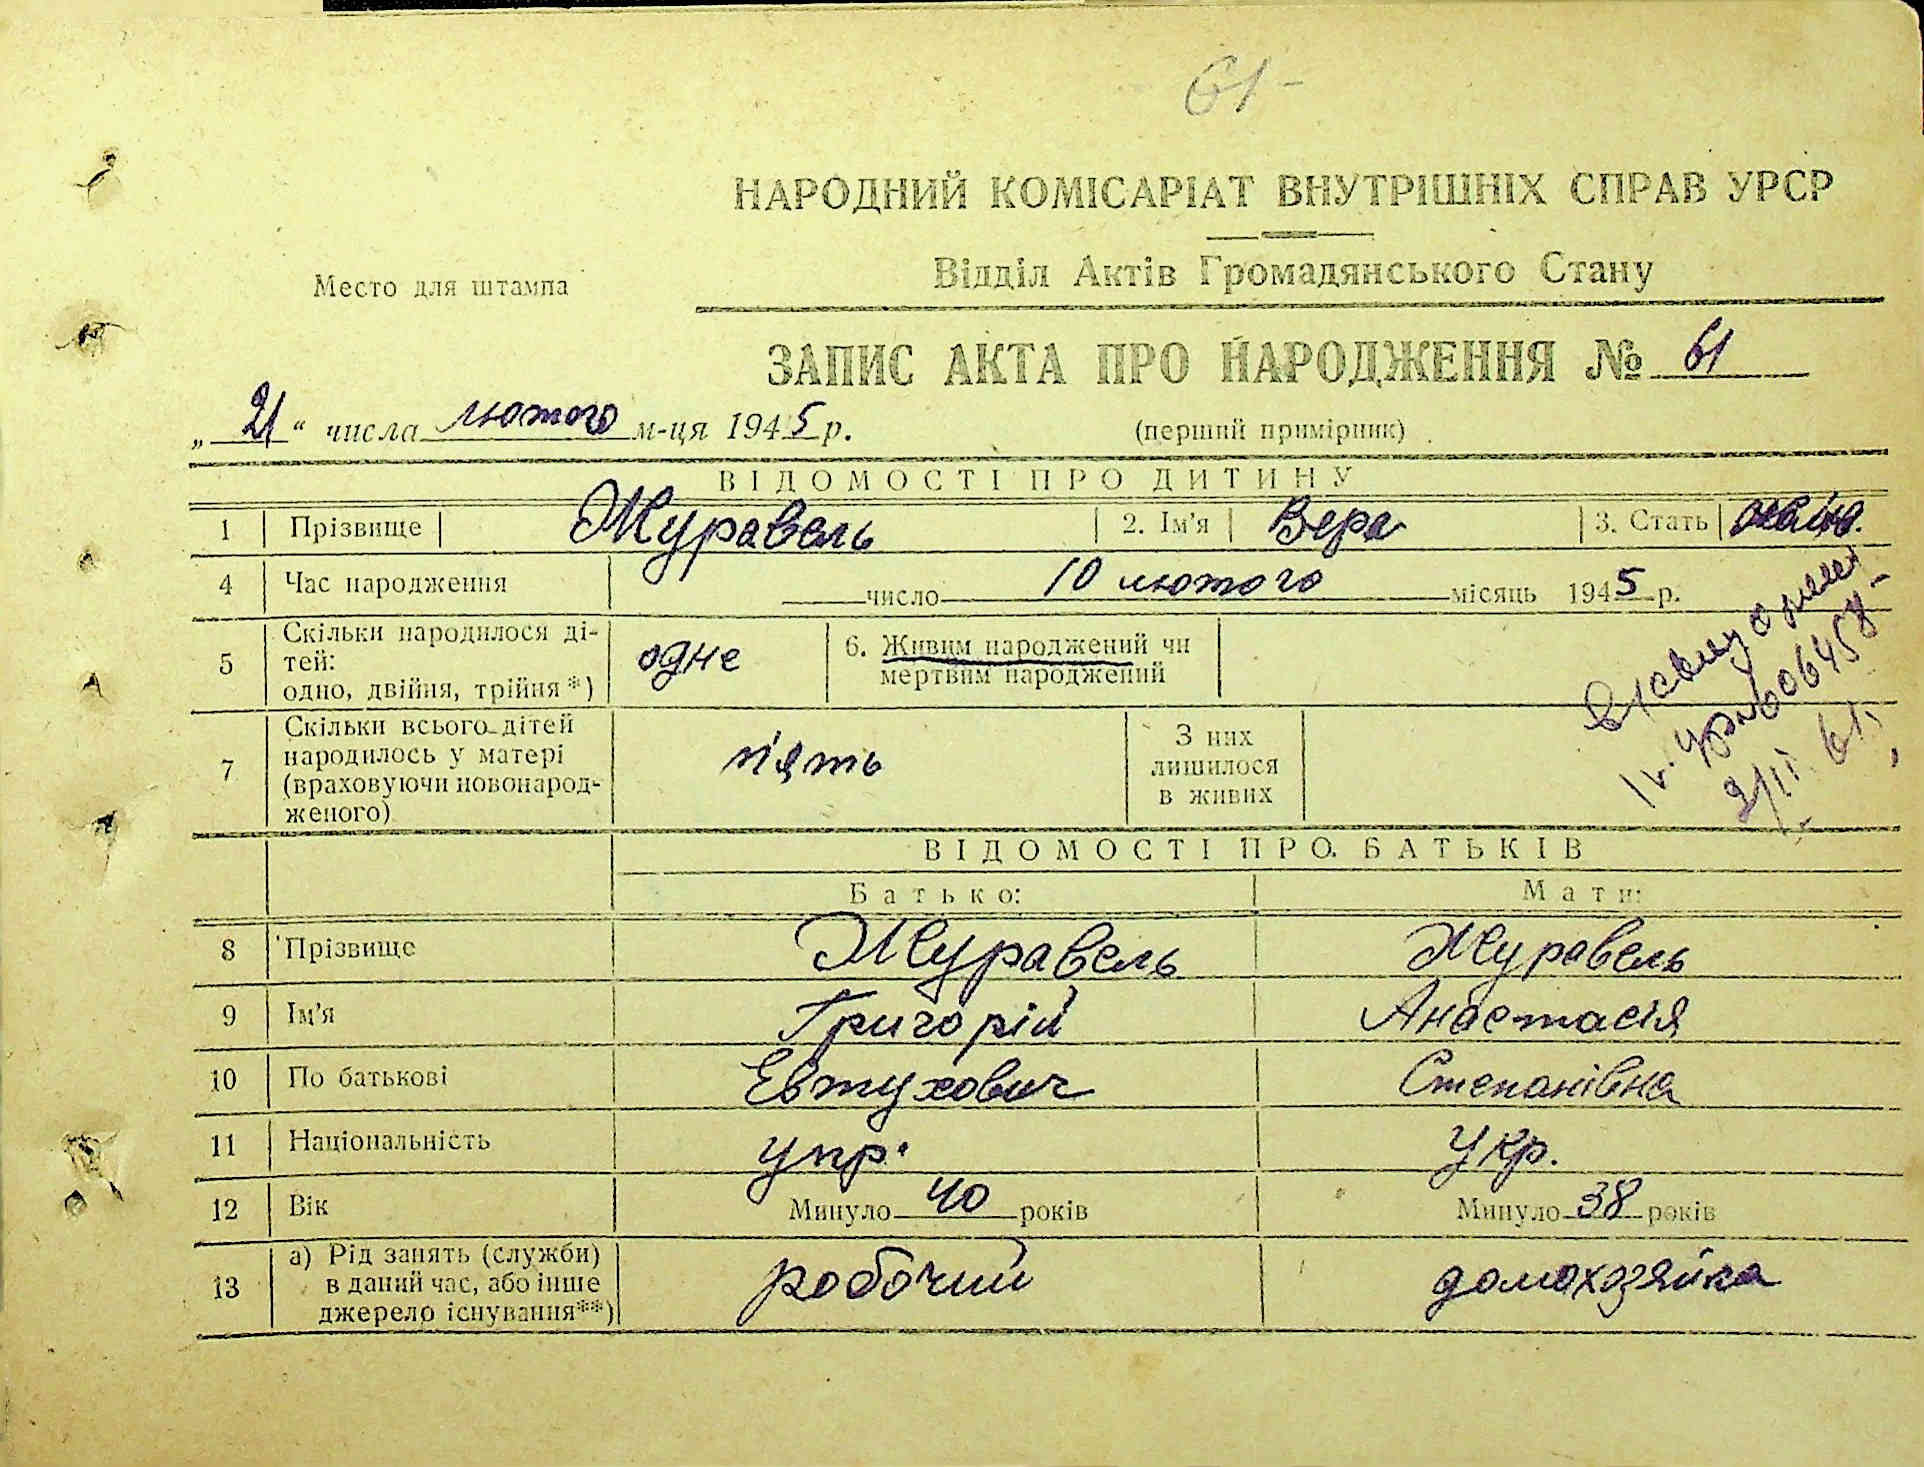 61-
НАРОДНИЙ КОМІСАРІАТ ВНУТРІШНІХ СПРАВ УРСР
Место для штампа
Відділ Актів Громадянського Стану
ЗАПИС АКТА ПРО НАРОДЖЕННЯ № 61
„21“ числа лютого м-ця 1945 р.
(перший примірник)
ВІДОМОСТІ ПРО ДИТИНУ
1 Прізвище Журавель 2. Ім'я Вера 3. Стать
4 Час народження число 10 лютого місяць 1945 р.
5 Скільки народилося ді-
тей:
одно, двійня, трійня*) одне
6. Живим народжений чи
мертвим народжений
7 Скільки всього дітей
народилось у матері
(враховуючи новонарод-
женого) п'ять
З них
лишилося
в живих
606458-
2/II 61
ВІДОМОСТІ ПРО БАТЬКІВ
Батько: Мати:
8 Прізвище Журавель Журавель
9 Ім'я Григорій Анастасія
10 По батькові Евтухович Степанівна
11 Національність укр. укр.
12 Вік Минуло 40 років Минуло 38 років
13 а) Рід занять (служби)
в даний час, або інше
джерело існування**) робочий домохозяйка